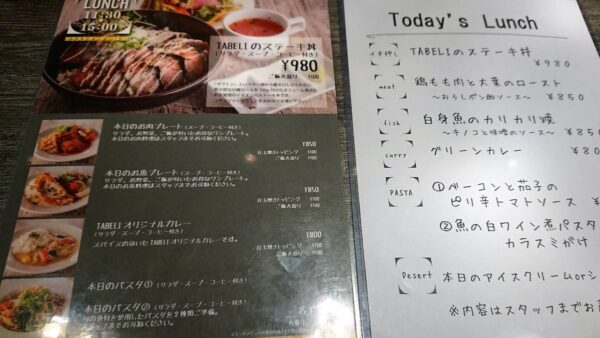 LUNCH
11:30
15:00
TABELIのステーキ丼
(サラダ・スープ・コーヒー付き)
¥980
ご飯大盛り ¥100
本日のお肉プレート(スープ・コーヒー付き)
サラダ、お野菜、ご飯が付いたお得なワンプレート。
本日のお肉料理はスタッフまでお尋ねください。
¥850
目玉焼きトッピング ¥100
ご飯大盛り ¥100
本日のお魚プレート(スープ・コーヒー付き)
サラダ、お野菜、ご飯が付いたお得なワンプレート。
本日のお魚料理はスタッフまでお尋ねください。
¥850
目玉焼きトッピング ¥100
ご飯大盛り ¥100
TABELI オリジナルカレー
(サラダ・スープ・コーヒー付き)
スパイスの効いたTABELIオリジナルカレーです。
¥800
目玉焼きトッピング ¥100
ご飯大盛り ¥100
本日のパスタ① (サラダ・スープ・コーヒー付き)
本日のパスタ② (サラダ・スープ・コーヒー付き)
旬の食材を使用したパスタを2種類ご準備。
スタッフまでお尋ねください。
Today's Lunch
イチオシ TABELIのステーキ丼
¥980
meat 鶏もも肉と大葉のロースト
～おろしポン酢ソース～ ¥850
fish 白身魚のカリカリ焼
～キノコと味噌のソース～ ¥850
curry グリーンカレー ¥80
PASTA ①ベーコンと茄子の
ピリ辛トマトソース ¥
②魚の白ワイン煮パスタ
カラスミがけ
Desert 本日のアイスクリームorシ
※内容はスタッフまでお